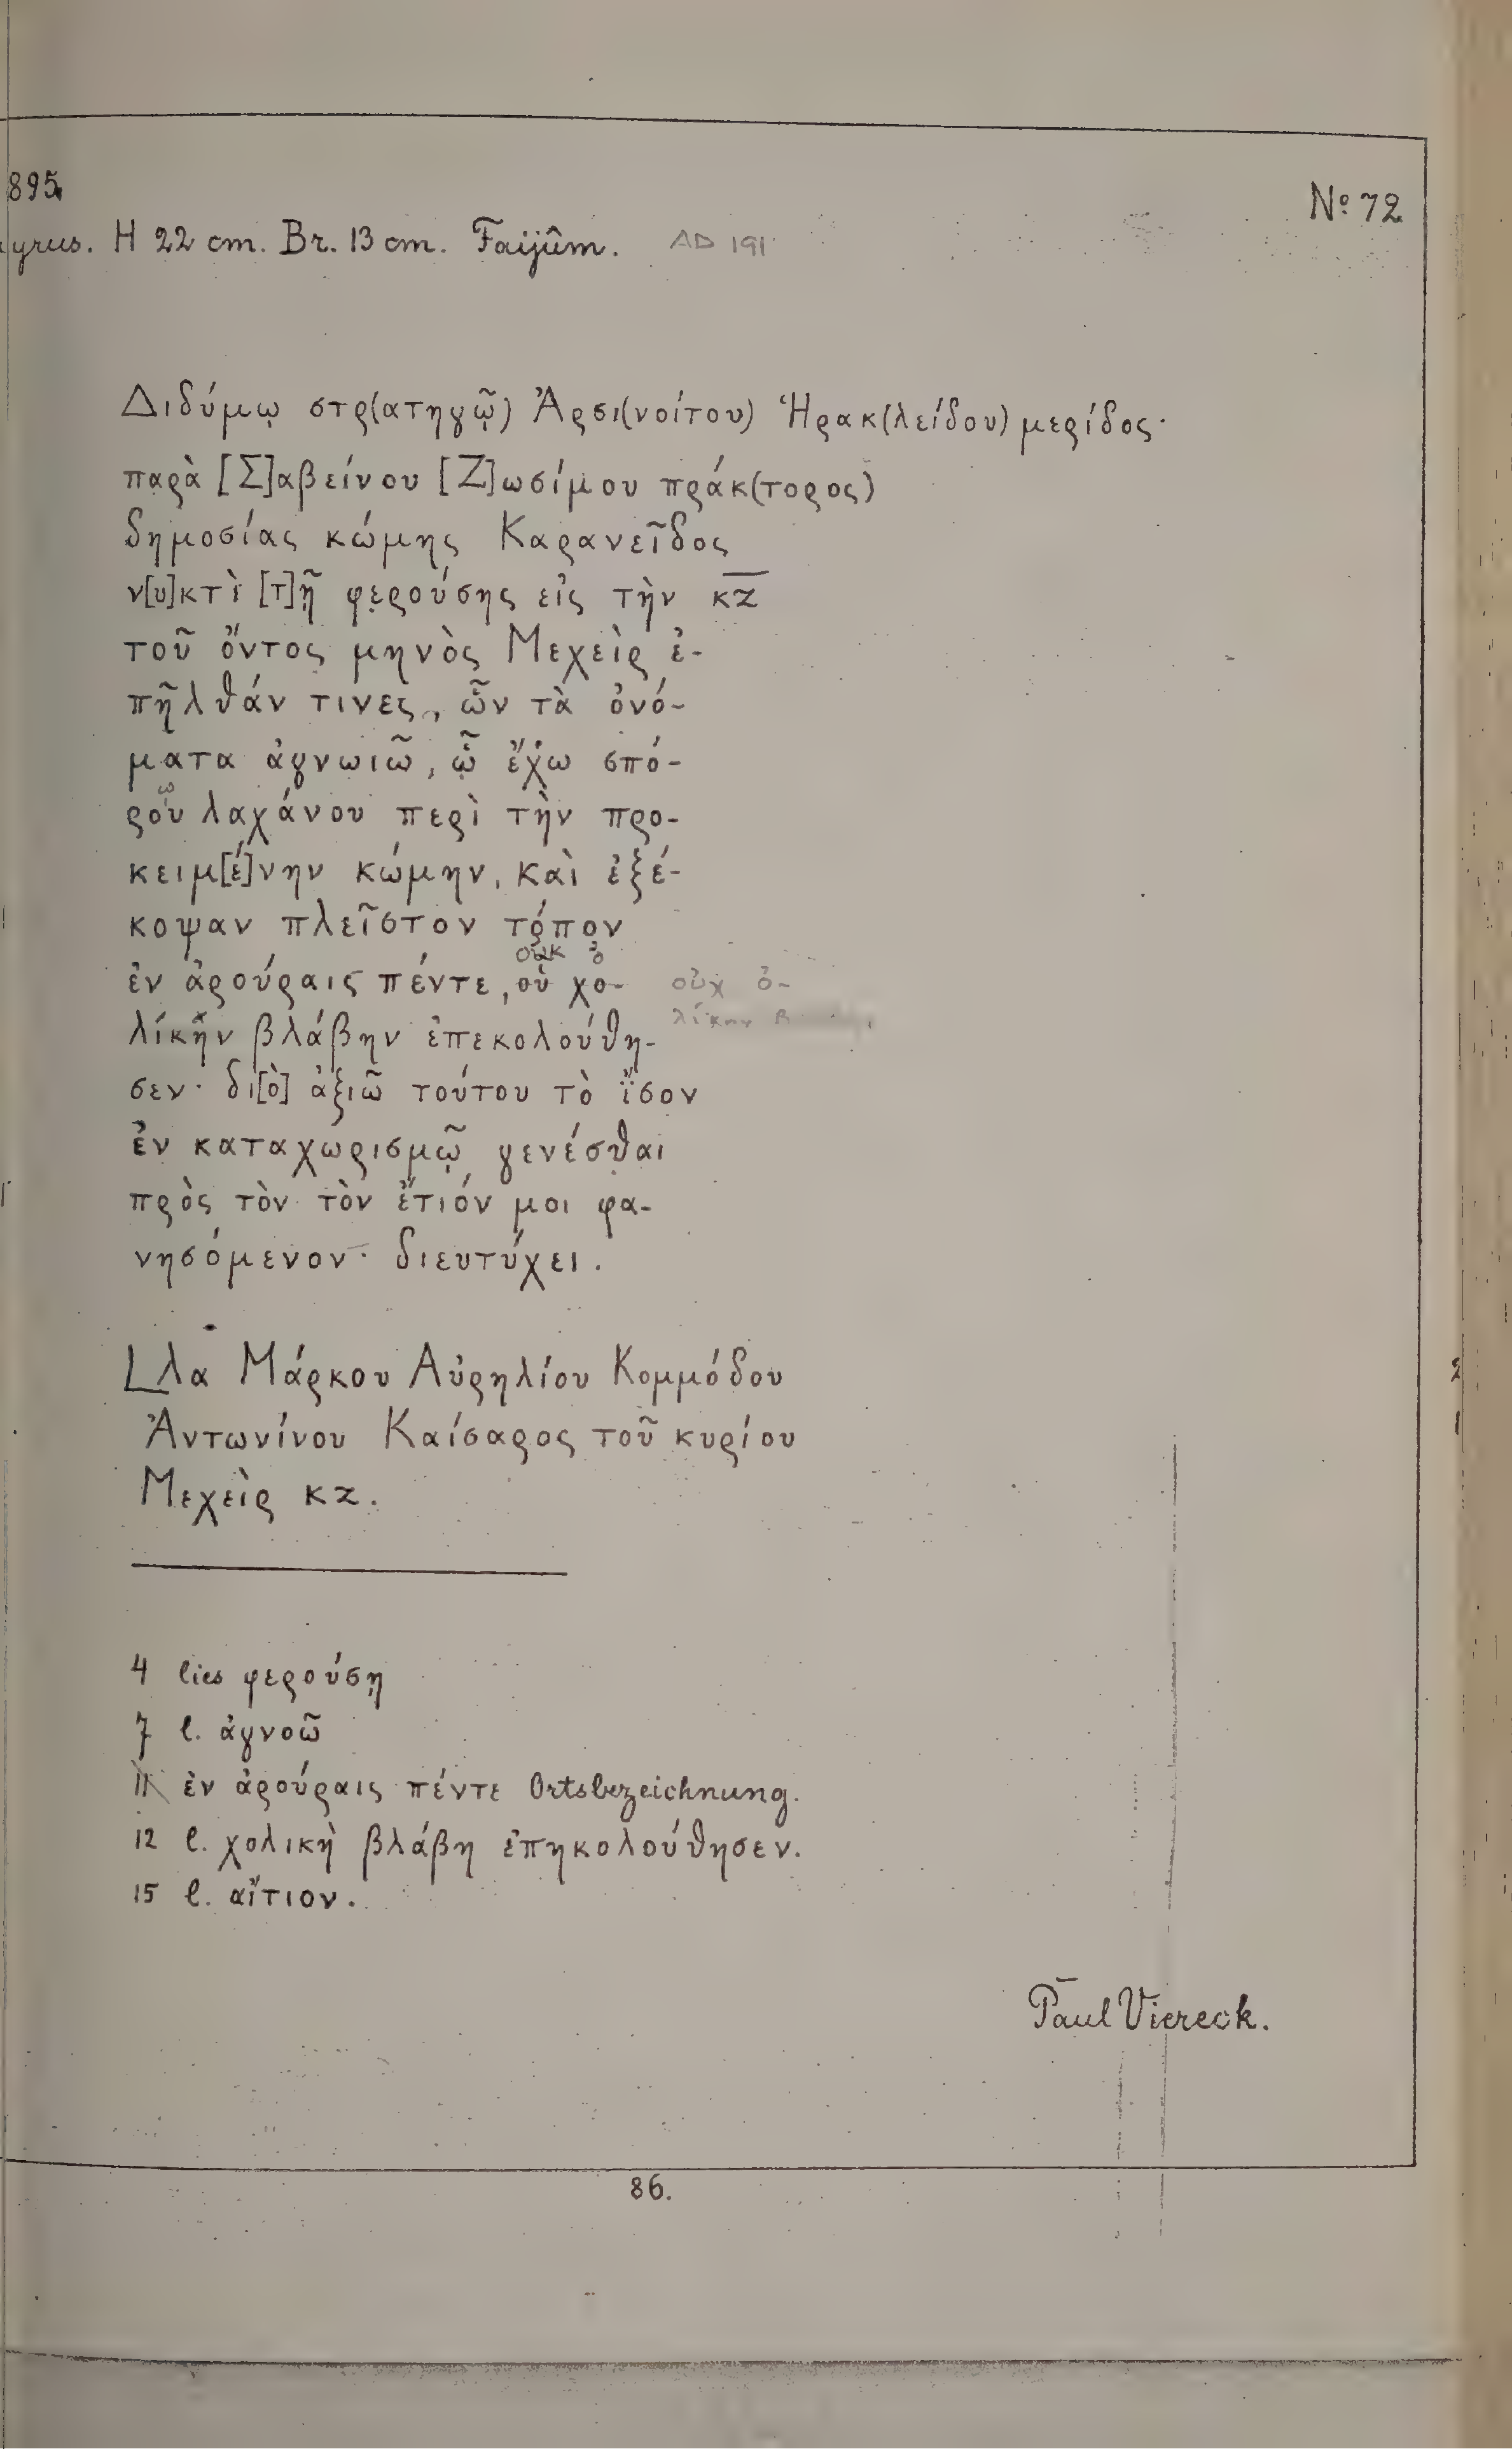 895.
No 72
yrus. H 22 cm. Br. 13 cm. Faijûm. AD 191
Διδύμῳ στρ(ατηγῷ) Ἀρσι(νοίτου) Ἡρακ(λείδου) μερίδος·
παρὰ [Σ]αβείνου [Ζ]ωσίμου πράκ(τορος)
δημοσίας κώμης Καρανεῖδος
ν[υ]κτὶ [τ]ῇ φερούσης εἰς τὴν κ̅ζ̅
τοῦ ὄντος μηνὸς Μεχεὶρ ἐ-
πῆλθάν τινες, ὧν τὰ ὀνό-
ματα ἀγνωιῶ, ᾧ ἔχω σπό-
ρου λαχάνου περὶ τὴν προ-
κειμ[έ]νην κώμην, καὶ ἐξέ-
κοψαν πλεῖστον τόπον
οὐκ ὁ
ἐν ἀρούραις πέντε, οὗ χο- οὐχ ὀ-
λίκην βλάβην ἐπεκολούθη- λίκην β
σεν· δι[ὸ] ἀξιῶ τούτου τὸ ἴ̈σον
ἐν καταχωρισμῷ γενέσθαι
πρὸς τὸν τὸν ἔτιόν μοι φα-
νησόμενον· διευτύχει.
Lλα Μάρκου Αὐρηλίου Κομμόδου
Ἀντωνίνου Καίσαρος τοῦ κυρίου
Μεχεὶρ κζ.
4 lies φερούσῃ
7 l. ἀγνοῶ
11 ἐν ἀρούραις πέντε Ortsbezeichnung.
12 l. χολικὴ βλάβη ἐπηκολούθησεν.
15 l. αἴτιον.
Paul Viereck.
86.